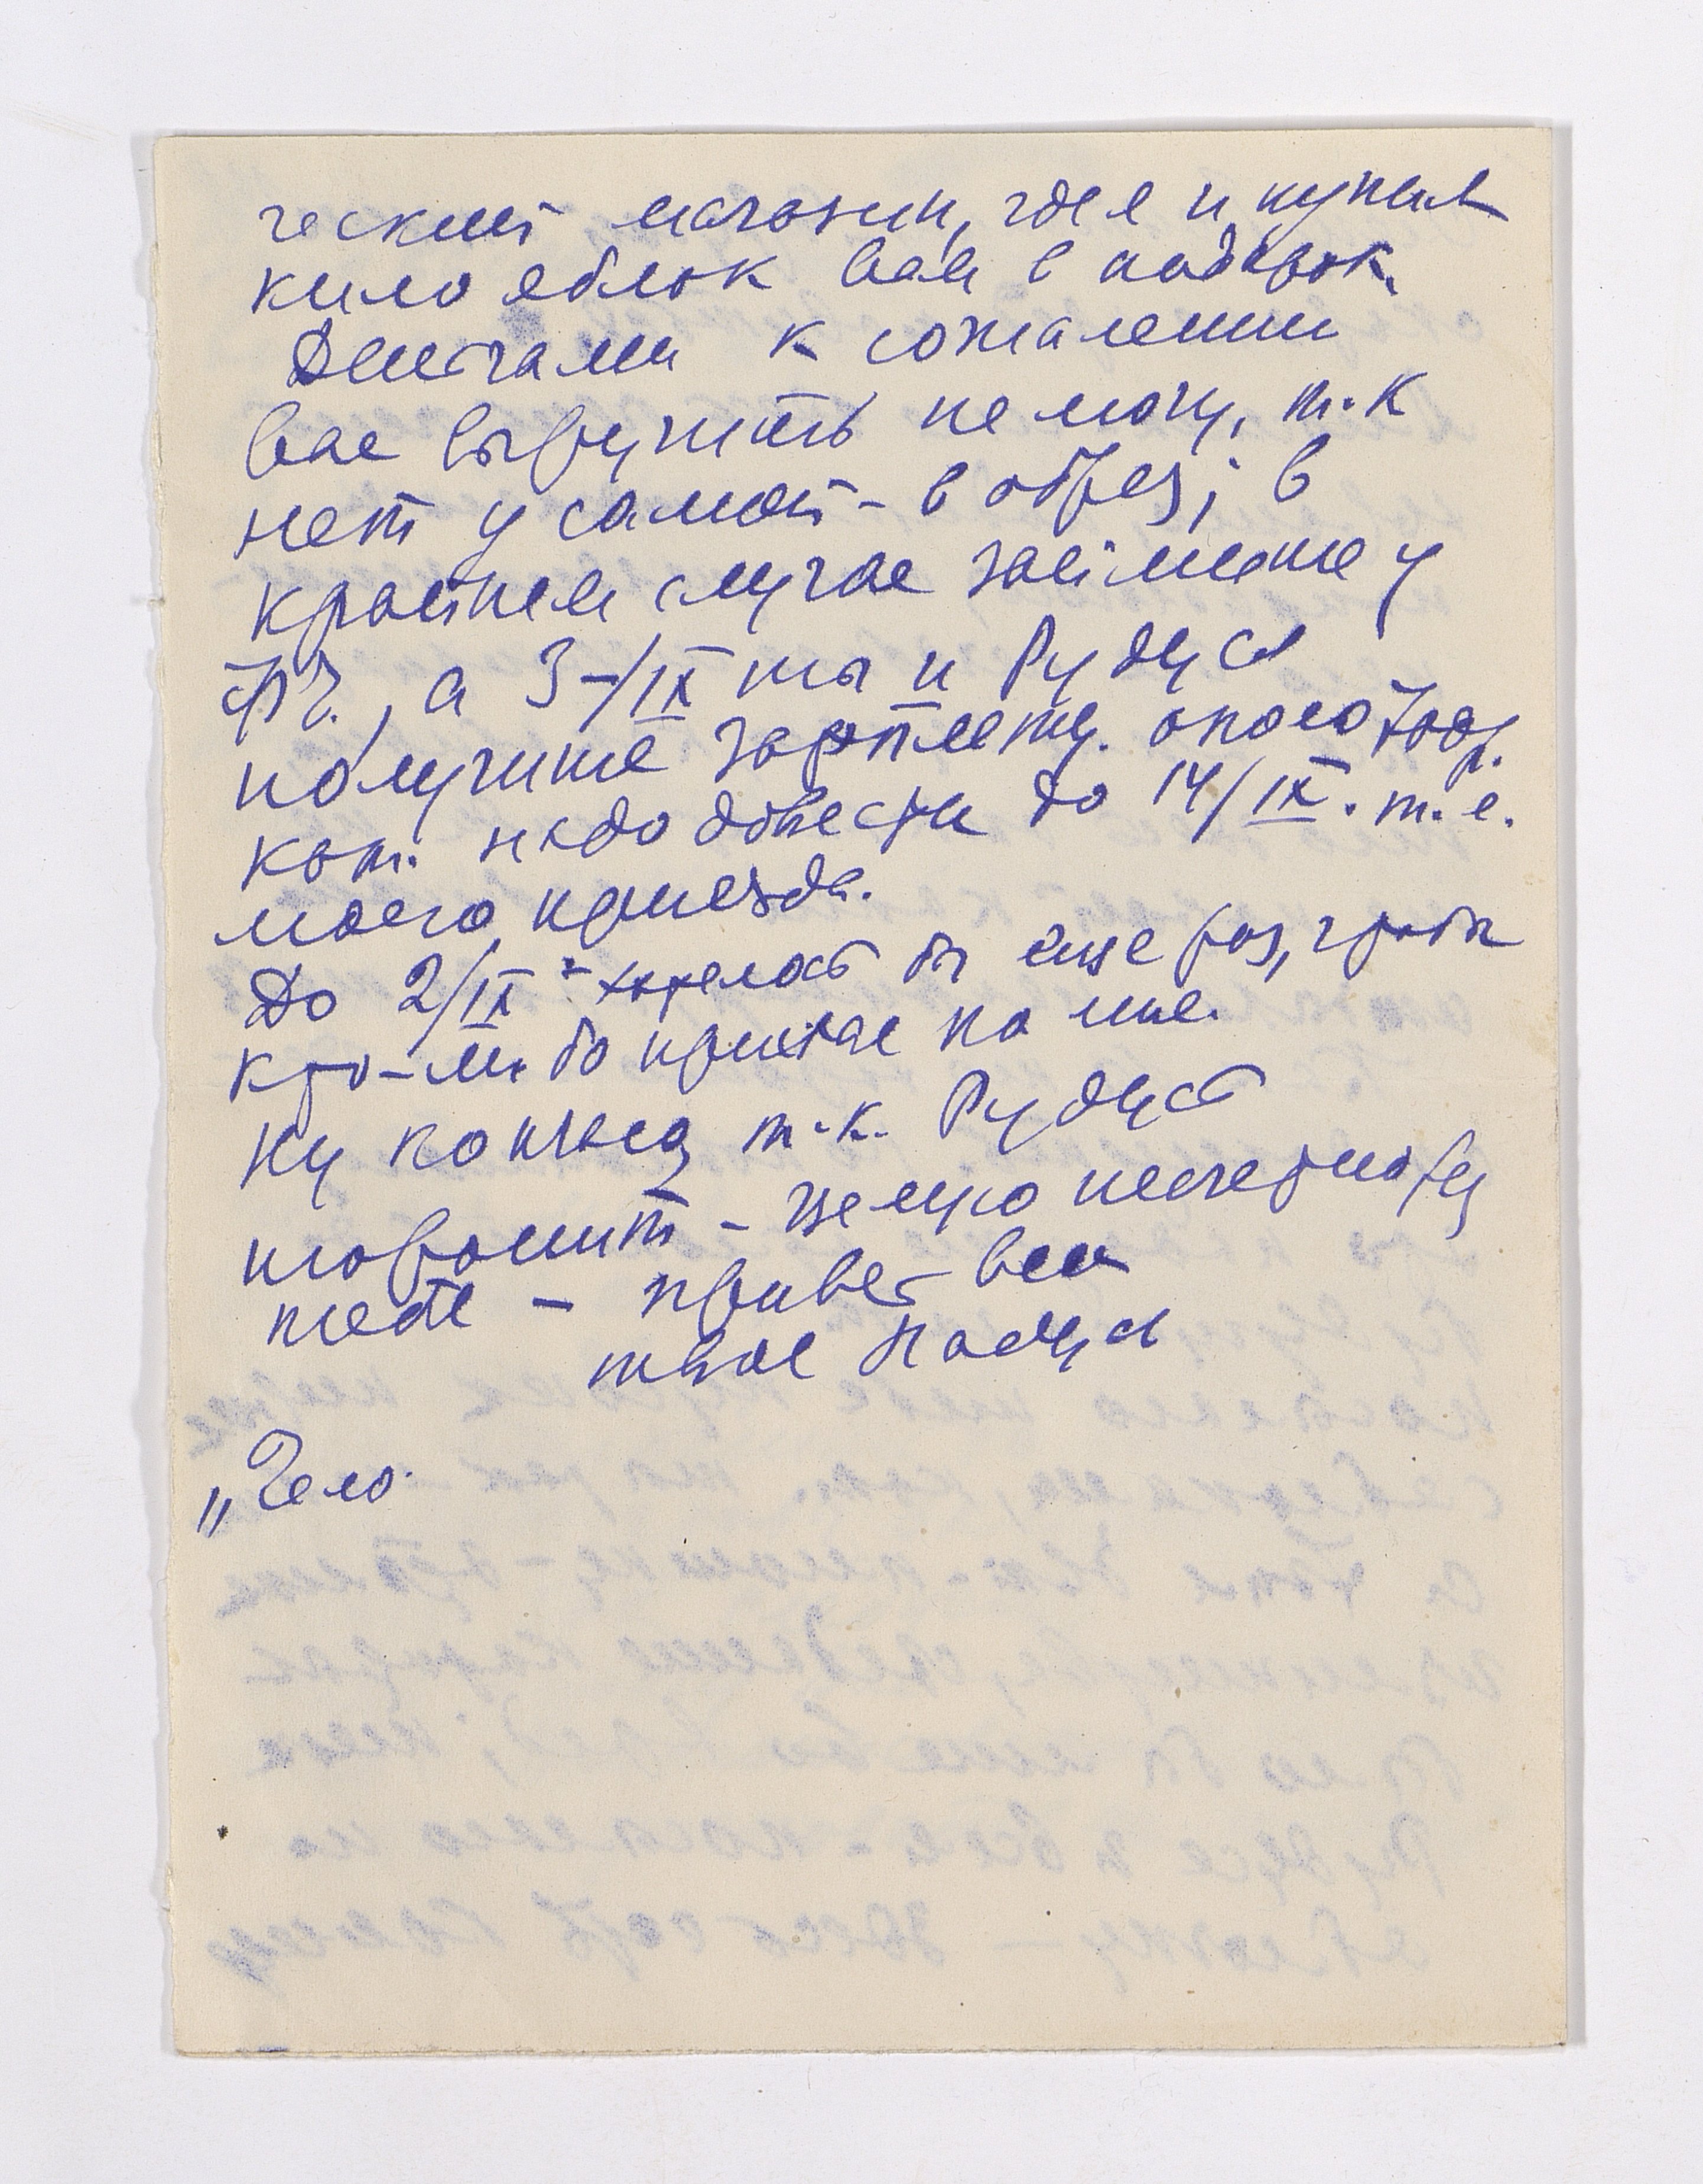 ческий магазин, где я и купила
кило яблок вам в подарок.
Деньгами к сожалению
вас выручить не могу, т.к
нет у самой - в обрез; в
крайнем случае займите у
а 3-/IX ты и Рудуся
получите зарплату. около
кот. надо довести до 14/IX. т.е.
моего приезда.
До 2/IX - хотелось бы еще раз, чтобы
кто-либо приехал ко мне.
Ну кончаю т.к. Рудуся
торопит - целую
тебя - привет всем
твоя Надуся
„Чело